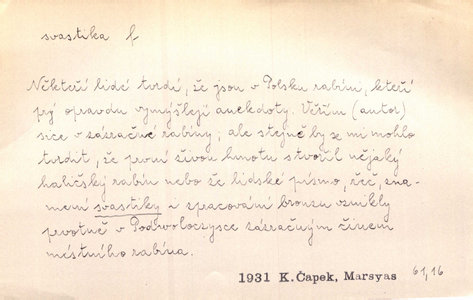 svastika f.
Někteří lidé tvrdí, že jsou v Polsku rabíni, kteří
prý opravdu vymýšlejí anekdoty. Věřím (autor)
sice v zázračné rabíny; ale stejně by se mi mohlo
tvrdit, že první živou hmotu stvořil nějaký
haličský rabín nebo že lidské písmo, řeč, zna-
mení svastiky i zpracování bronzu vznikly
prvotně v Podwoloczysce zázračným činem
místního rabína.
1931 K.Čapek, Marsyas 61,16